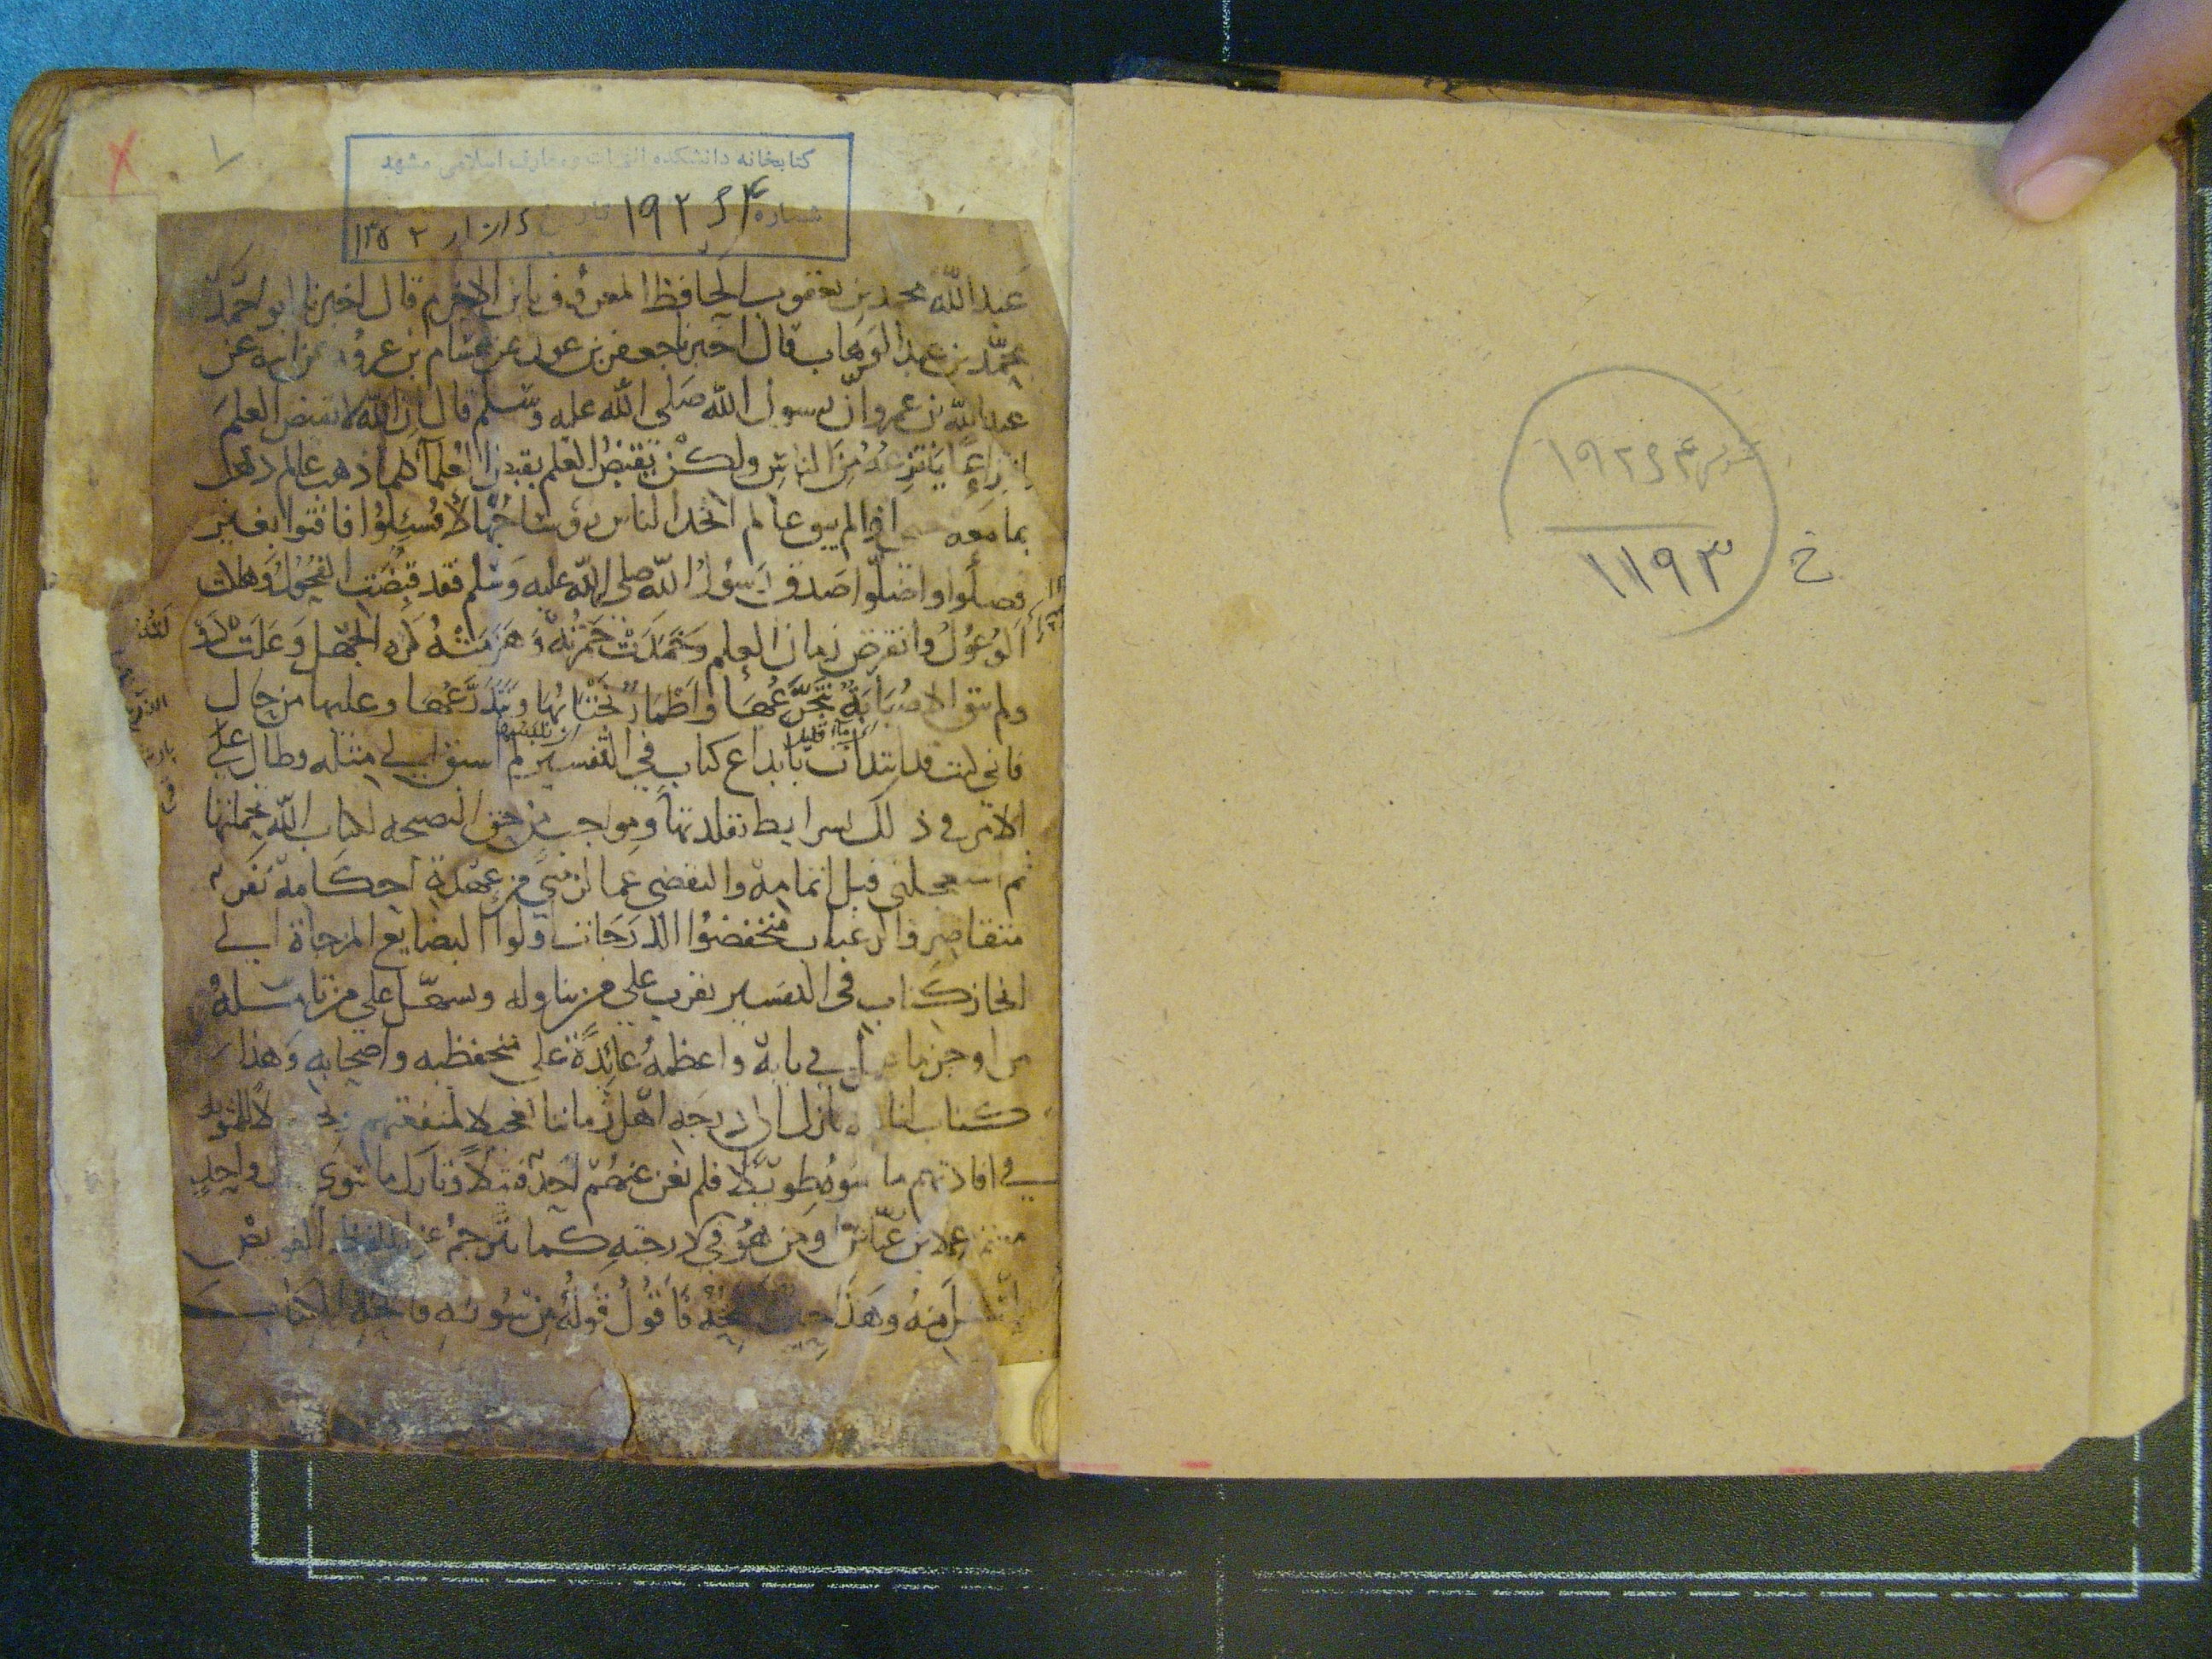 كتابخانه دانشكده الهيات و معارف اسلامى مشهد
شماره ۱۹۲۶۴ تاريخ
عبد الله محمد بن يعقوب الحافظ المعروف بابن الاخرم قال اخبرنا ابو احمد
محمد بن عبد الوهاب قال اخبرنا جعفر بن عون عن هشام بن عروة عن ابيه عن
عبد الله بن عمرو ان رسول الله صلى الله عليه وسلم قال ان الله لا يقبض العلم
انتزاعا ينتزعه من الناس ولكن يقبض العلم بقبض العلما كلما ذهب عالم ذهب
بما معه اذا لم يبق عالم اتخذ الناس رؤسا جهالا فسئلوا فافتوا بغير
فضلوا واضلوا صدق رسول الله صلى الله عليه وسلم فقد قبضت الفحول وهلك
الوعول وانقرض زمان العلم وخمدت جمرته وهزمته كره الجهل وعلت
ولم يبق الا صبابة نتجرعها واطمار نجتابها ونتدرعها وعليها من حال
ماء قليل نلبسها
فانى كنت قد ابتدات بابداع كتاب في التفسير لم اسبق الى مثله وطال على
الامر في ذلك لشرايط تقلدتها ومواجب من حق النصيحه لكتاب الله تحملتها
ثم استعجلنى قبل اتمامه والتفصى عما لزمنى من عهدة احكامه نفر
متقاصروا الرغبات منخفضوا الدرجات اولوا البضايع المزجاة الى
ايجاز كتاب في التفسير يقرب على من يتناوله ويسهل على من تامله
من اوجز ما عمل في بابه واعظمه عائدة على متحفظيه واصحابه وهذا
كتاب انا فيه نازل الى درجه اهل زماننا تعجيلا لمنفعتهم وتحصيلا للمثوبه
في افادتهم ما تمنوه طويلا فلم يغن عنهم احد فتيلا وتارك ما سوى قول واحد
معتمد لابن عباس او من هو في درجته كما يترجم عن اللفظ العويص
باسهل منه وهذا حين افتتحه فاقول قوله من سورة فاتحة الكتاب
۱۹۲۶۴
۱۱۹۳
خ